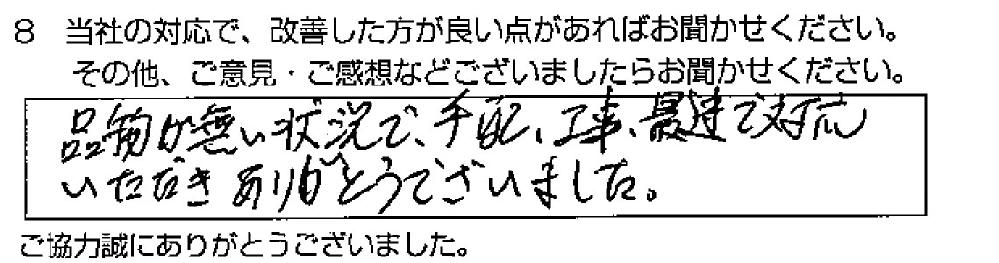 8 当社の対応で、改善した方が良い点があればお聞かせください。
その他、ご意見・ご感想などございましたらお聞かせください。
品物が無い状況で、手配、工事、最速で対応
いただきありがとうございました。
ご協力誠にありがとうございました。